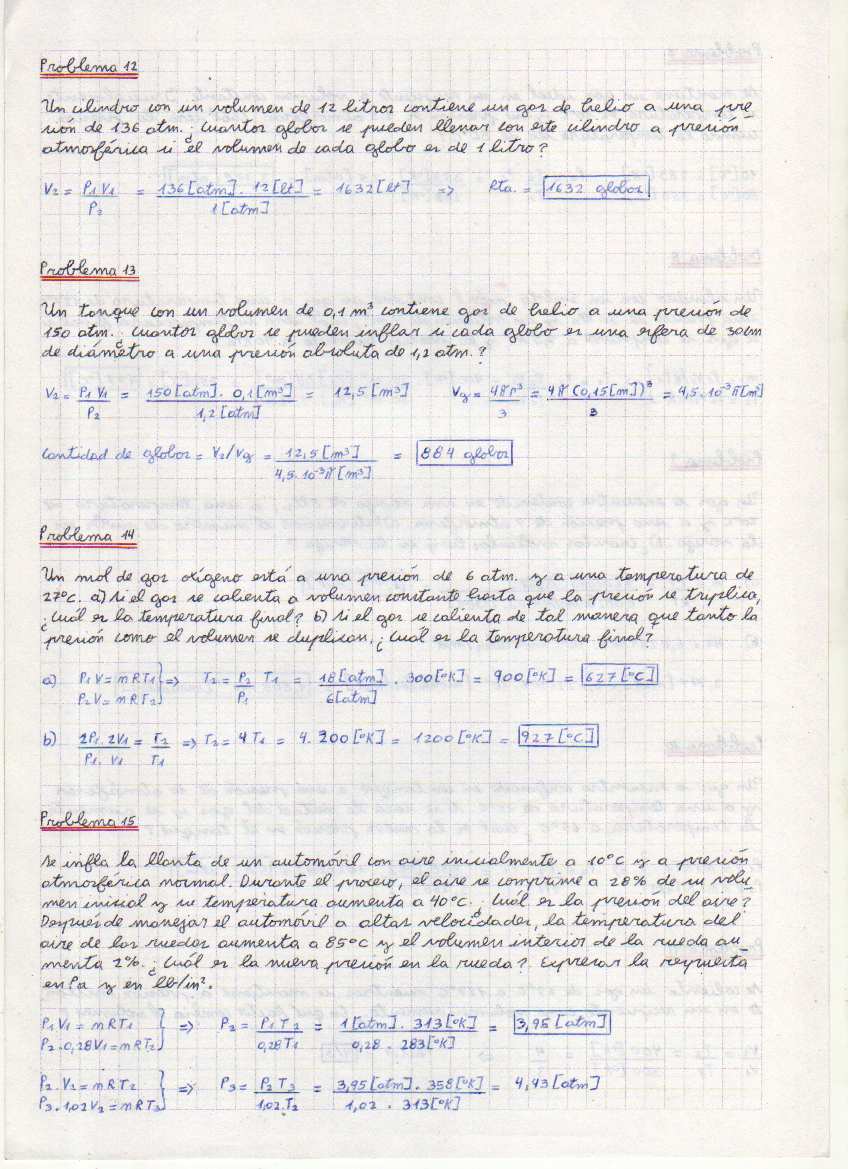 Problema 12
Un cilindro con un volumen de 12 litros contiene un gas de helio a una pre
sión de 136 atm. ¿Cuantos globos se pueden llenar con este cilindro a presión
atmosférica si el volumen de cada globo es de 1 litro?
V2 = P1 V1 / P2 = 136[atm] . 12[lt] / 1[atm] = 1632[lt] => Rta. = 1632 globos
Problema 13
Un tanque con un volumen de 0,1 m³ contiene gas de helio a una presión de
150 atm. ¿Cuantos globos se pueden inflar si cada globo es una esfera de 30cm
de diámetro a una presión absoluta de 1,2 atm.?
V2 = P1 V1 / P2 = 150[atm] . 0,1[m³] / 1,2[atm] = 12,5[m³] Vg = 4πr³ / 3 = 4π(0,15[m])³ / 3 = 4,5.10⁻³π[m³]
Cantidad de globos = V2/Vg = 12,5[m³] / 4,5.10⁻³π[m³] = 884 globos
Problema 14
Un mol de gas oxígeno está a una presión de 6 atm. y a una temperatura de
27°C. a) Si el gas se calienta a volumen constante hasta que la presión se triplica,
¿Cuál es la temperatura final? b) Si el gas se calienta de tal manera que tanto la
presión como el volumen se duplican, ¿Cuál es la temperatura final?
a) P1 V = n R T1 } => T2 = P2 / P1 T1 = 18[atm] / 6[atm] . 300[°K] = 900[°K] = 627[°C]
P2 V = n R T2
b) 2P1 . 2V1 / P1 . V1 = T2 / T1 => T2 = 4 T1 = 4 . 300[°K] = 1200[°K] = 927[°C]
Problema 15
Se infla la llanta de un automóvil con aire inicialmente a 10°C y a presión
atmosférica normal. Durante el proceso, el aire se comprime a 28% de su volu
men inicial y su temperatura aumenta a 40°C. ¿Cuál es la presión del aire?
Después de manejar el automóvil a altas velocidades, la temperatura del
aire de las ruedas aumenta a 85°C y el volumen interior de la rueda au
menta 2%. ¿Cuál es la nueva presión en la rueda?. Expresar la respuesta
en Pa y en lb/in².
P1 V1 = n R T1 } => P2 = P1 T2 / 0,28 T1 = 1[atm] . 313[°K] / 0,28 . 283[°K] = 3,95[atm]
P2 . 0,28 V1 = n R T2
P2 . V2 = n R T2 } => P3 = P2 T3 / 1,02 . T2 = 3,95[atm] . 358[°K] / 1,02 . 313[°K] = 4,43[atm]
P3 . 1,02 V2 = n R T3